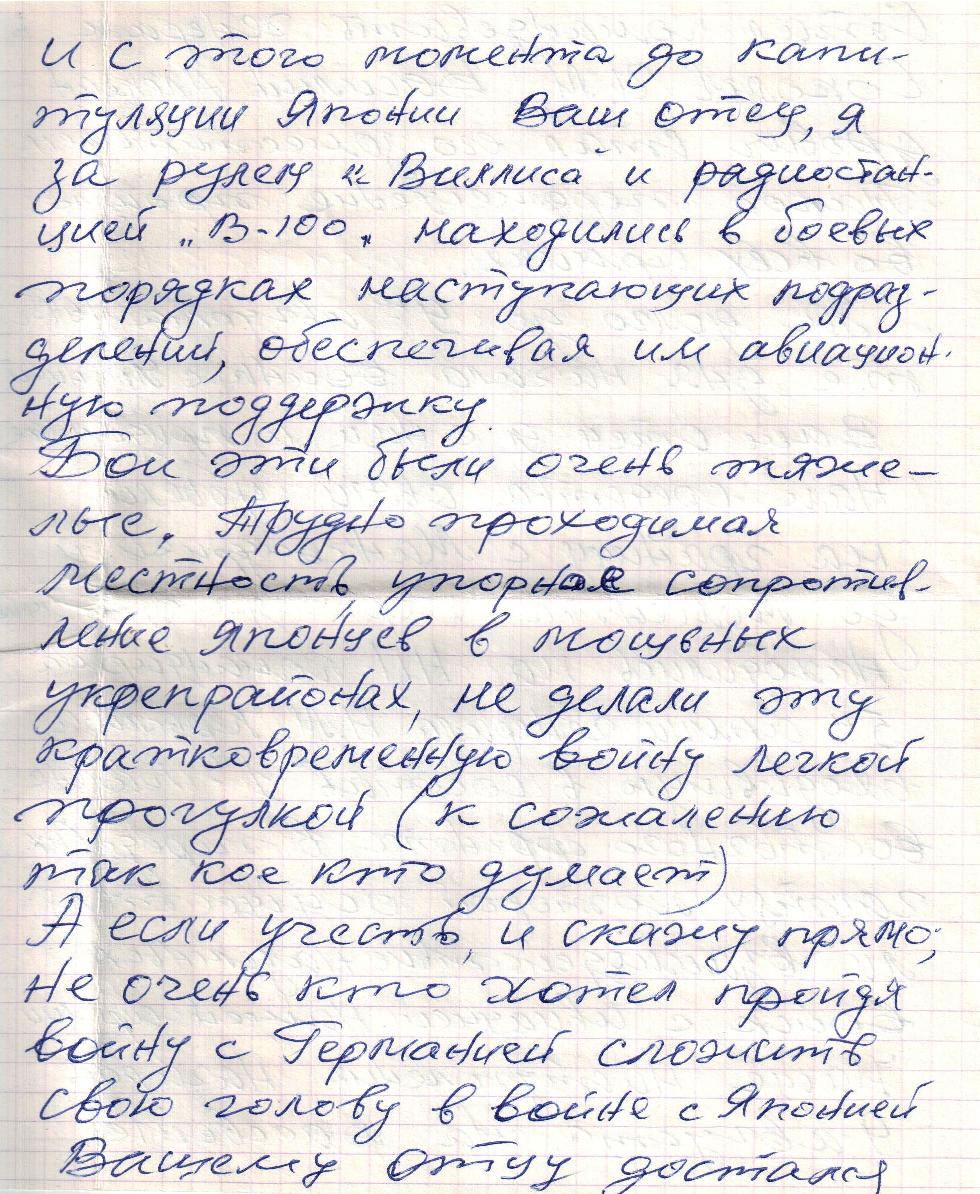 и с этого момента до капи-
туляции Японии Ваш отец, я
за рулем "Виллиса" и радиостан-
цией "В-100" находились в боевых
порядках наступающих подраз-
делений, обеспечивая им авиацион-
ную поддержку.
Бои эти были очень тяже-
лые. Трудно проходимая
местность, упорное сопротив-
ление японцев в мощных
укрепрайонах, не делали эту
кратковременную войну легкой
прогулкой (к сожалению
так кое кто думает)
А если учесть, и скажу прямо;
не очень кто хотел пройдя
войну с Германией сложить
свою голову в войне с Японией
Вашему отцу достался